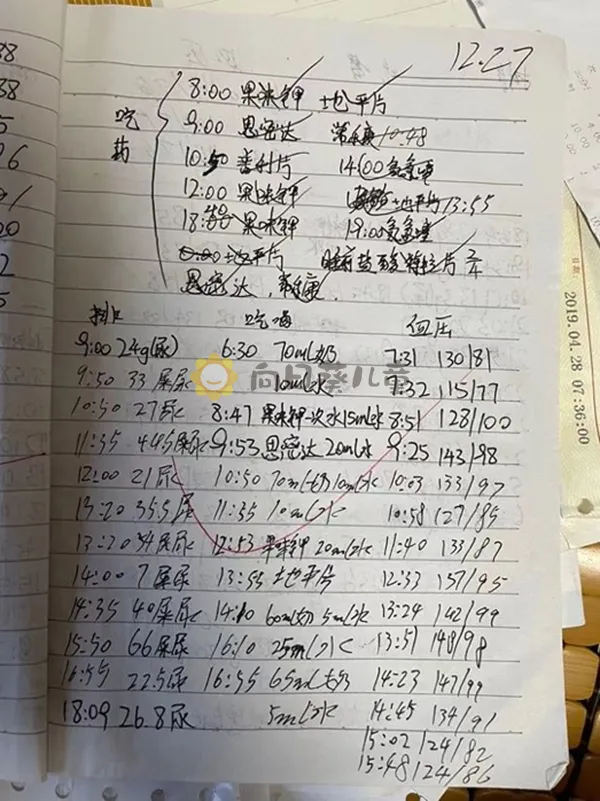 12.27
吃药
8:00 果味钾 地平片
9:00 思密达 常乐康 10:48
10:50 善利片 14:00
12:00 果味钾 地平片 13:55
18: 果味钾 19:00
地平片 睡前 盐酸
思密达,常乐康
排 吃喝 血压
9:00 24g(尿) 6:30 70ml奶 7:31 130/81
9:50 33 屎尿 10ml水 7:32 115/77
10:50 27尿 8:47 果味钾 水15ml水 8:51 128/100
11:35 屎尿 9:53 思密达 20ml水 9:25 143/98
12:00 21尿 10:50 70ml 10ml水 10:03 133/97
13:20 35.5尿 11:35 10ml水 10:58 127/85
13:20 34屎尿 12:53 果味钾 20ml水 11:40 133/87
14:00 7屎尿 13:55 地平片 12:33 137/95
14:35 40屎尿 14:10 60ml奶 5ml水 13:24 142/99
15:50 66屎尿 16:10 25ml水 13:51 148/98
16:55 22.5尿 16:55 65ml奶 14:23 147/99
18:09 26.8尿 5ml水 14:45 134/91
15:02 124/82
15:48 124/86
向日葵儿童
2019.04.28 07:36:00